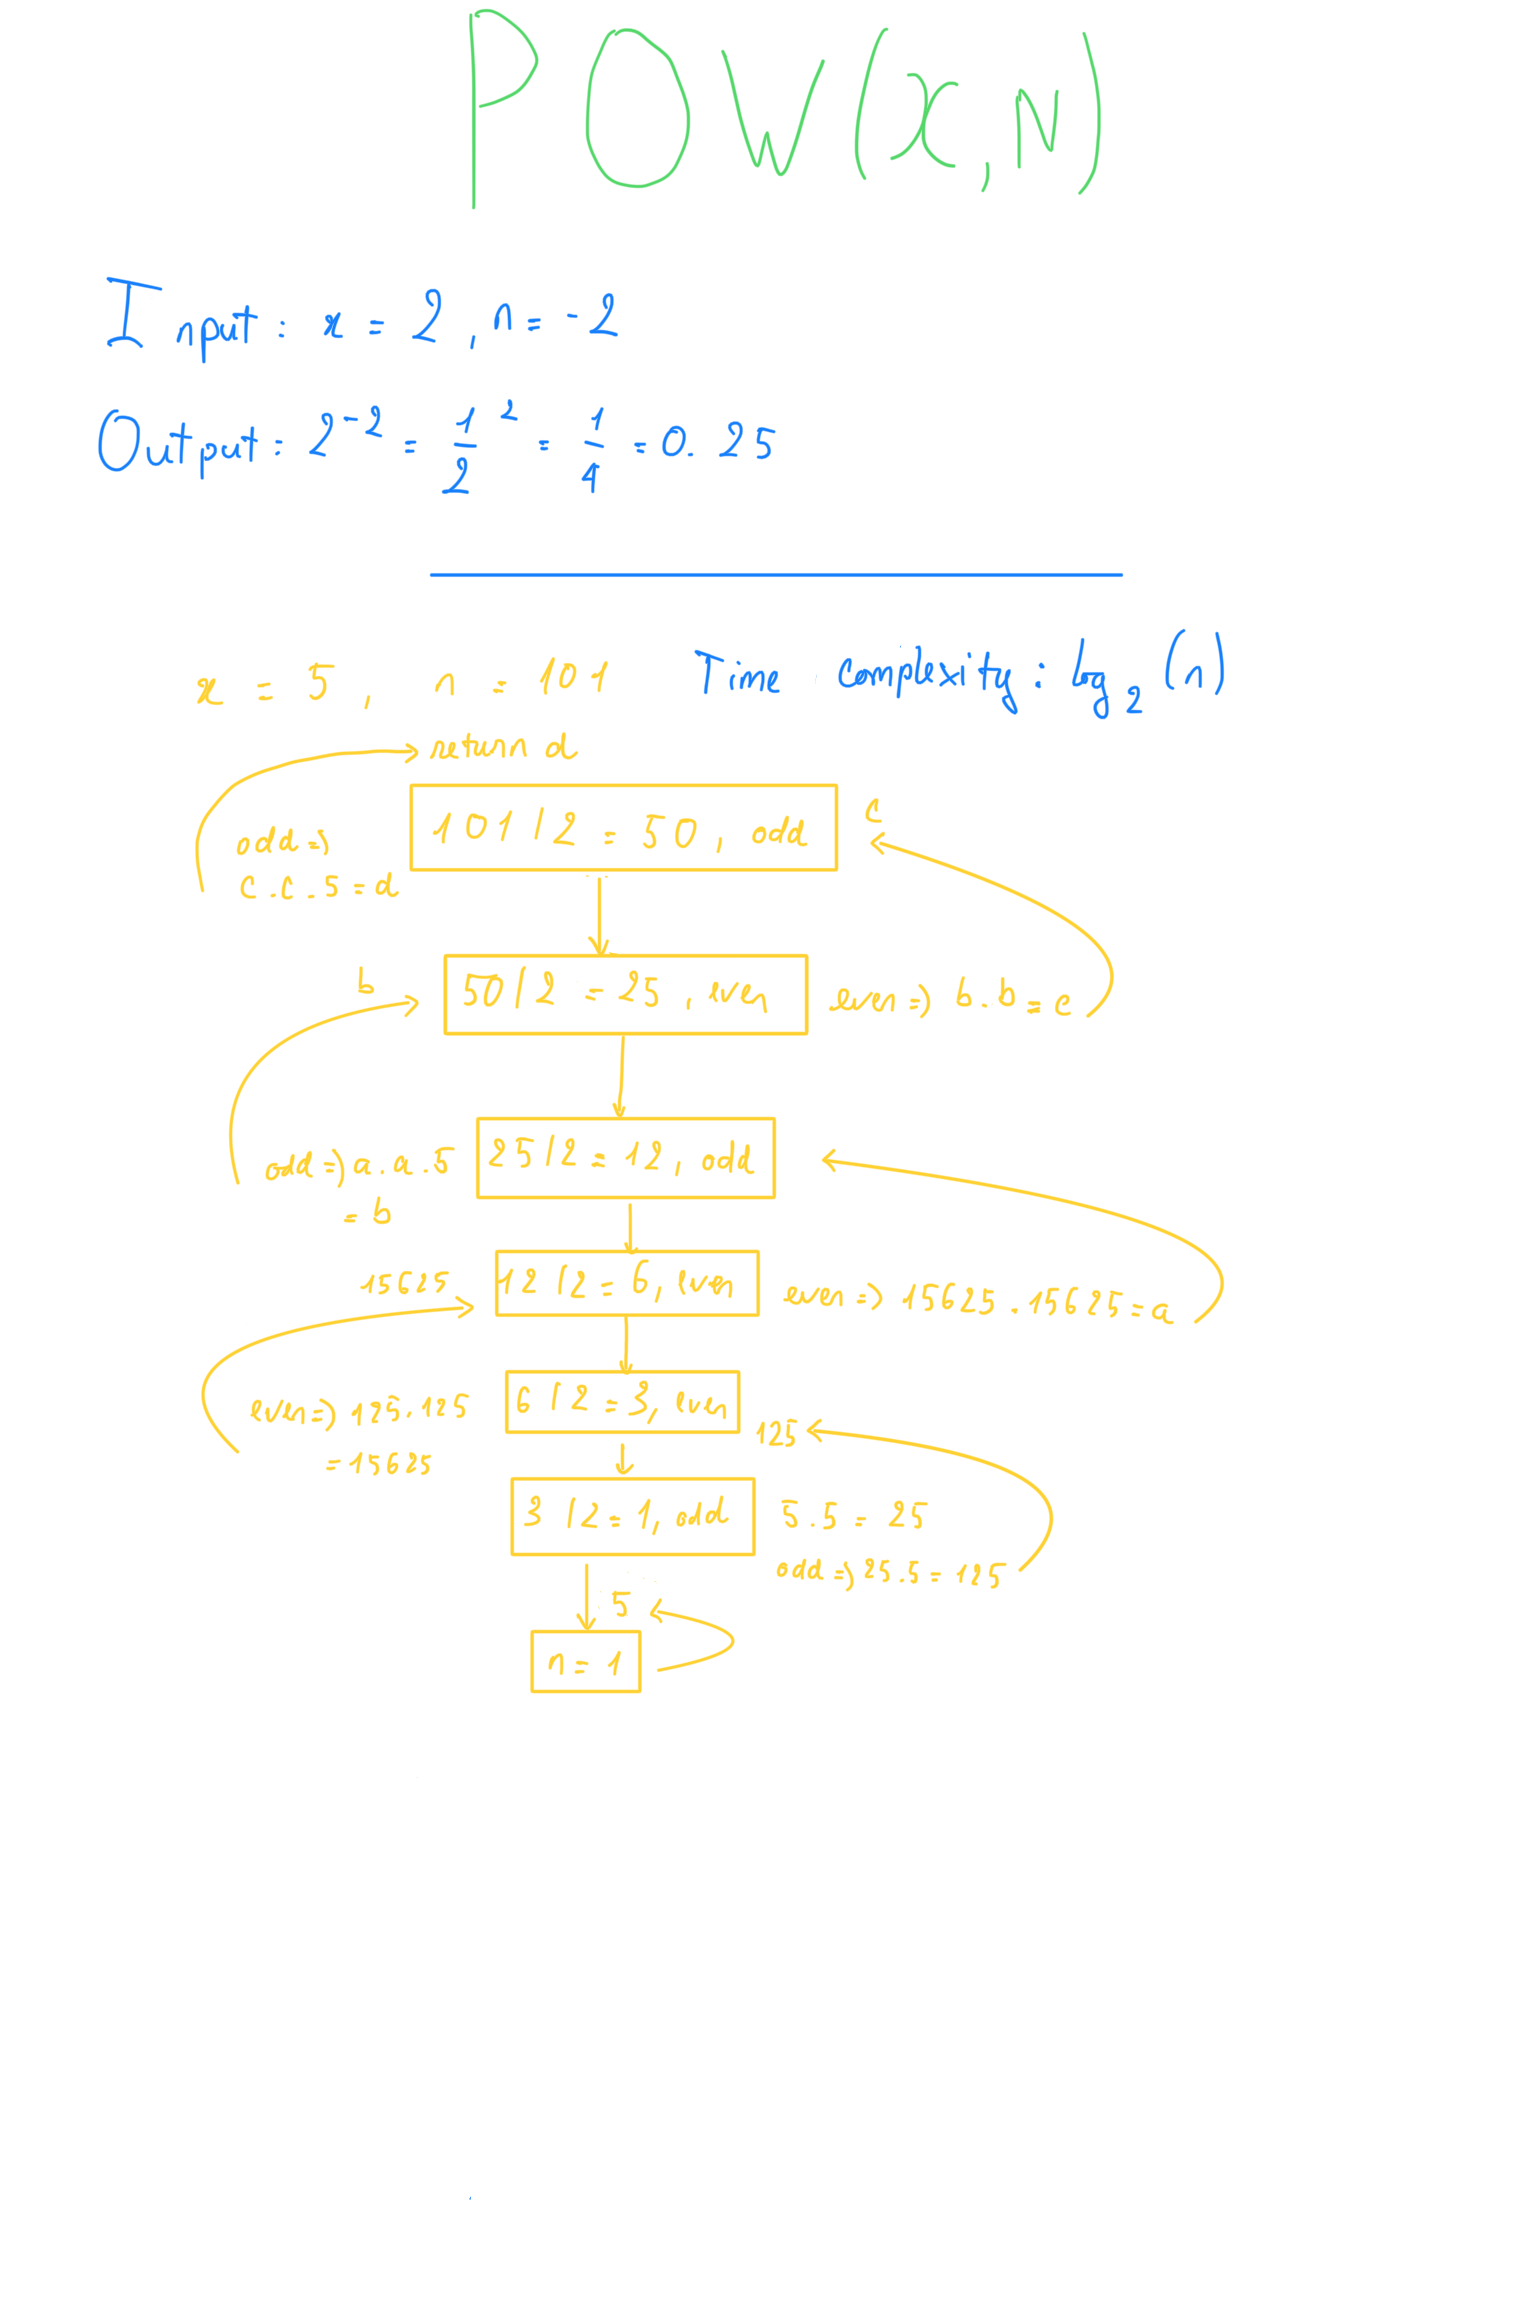 POW(x,N)
Input: x = 2, n = -2
Output: 2^-2 = 1/2 ^2 = 1/4 = 0.25
x = 5, n = 101
Time complexity: log2(n)
return d
101/2 = 50, odd
c
odd =>
c.c.5 = d
b
50/2 = 25, even
even => b.b = c
odd => a.a.5
= b
25/2 = 12, odd
15625
12/2 = 6, even
even => 15625.15625 = a
even => 125.125
= 15625
6/2 = 3, even
125
3/2 = 1, odd
5.5 = 25
odd => 25.5 = 125
5
n = 1